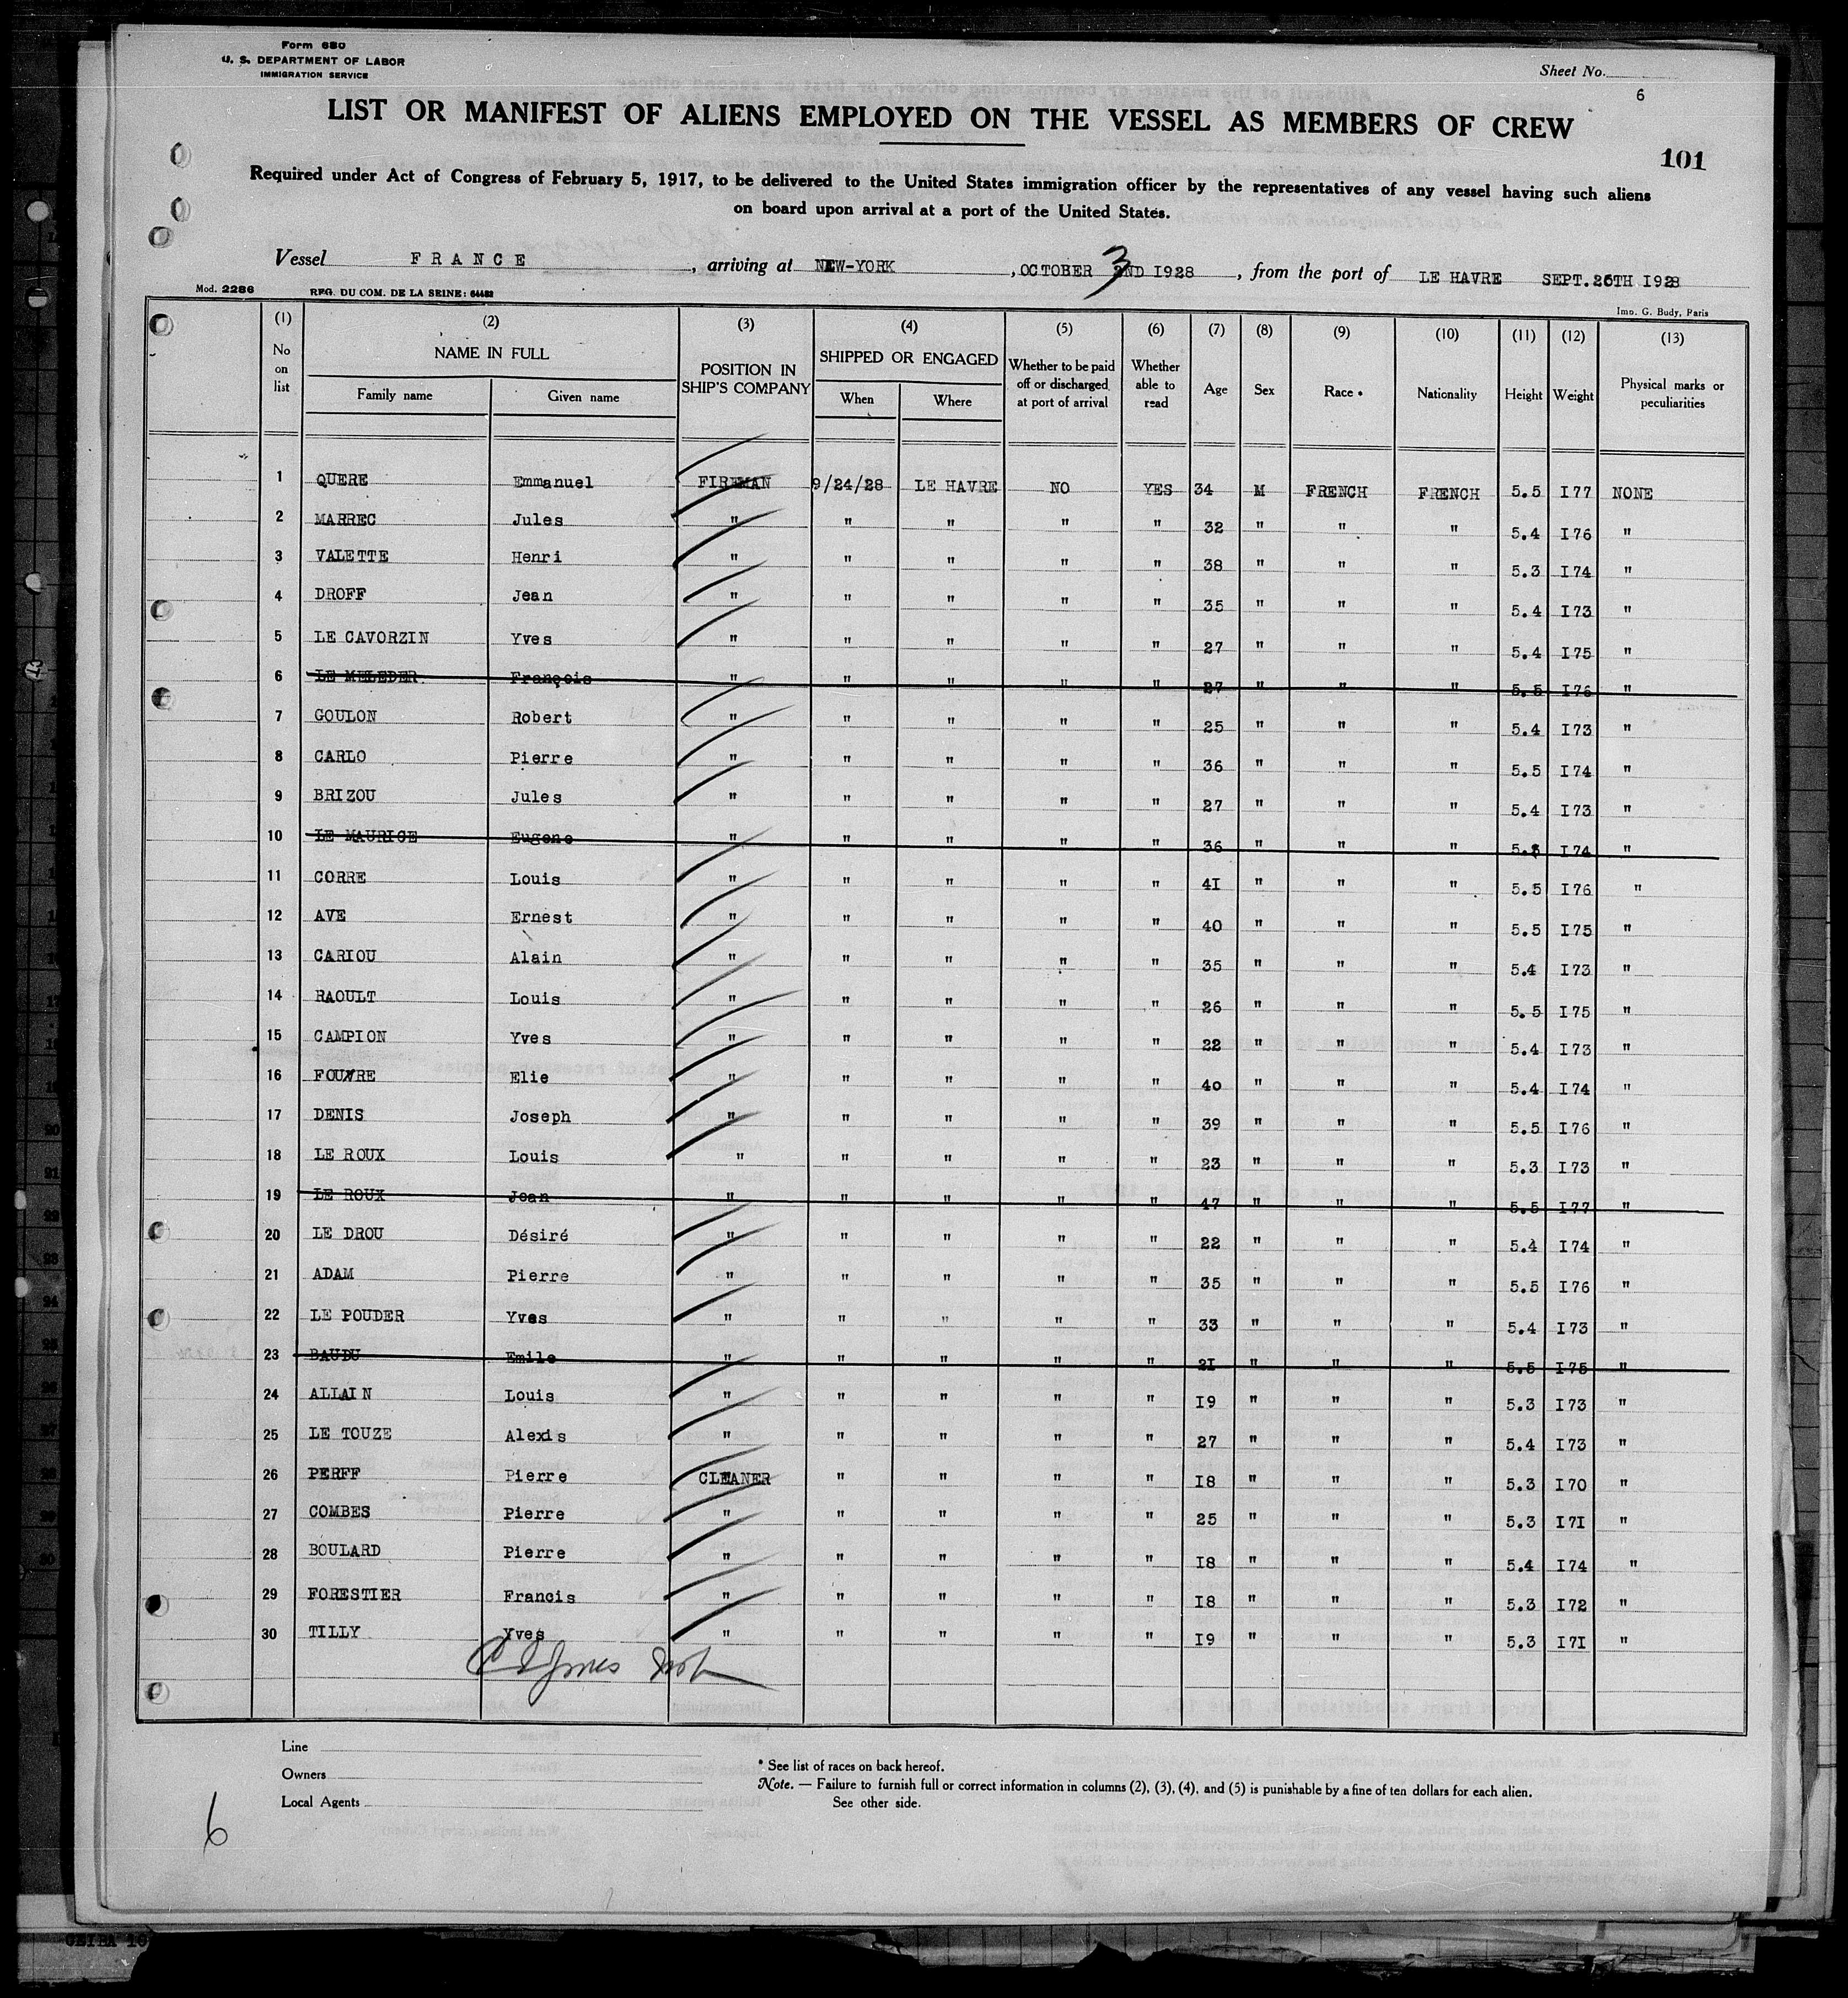 Form 680
U. S. DEPARTMENT OF LABOR
IMMIGRATION SERVICE
Sheet No.
6
LIST OR MANIFEST OF ALIENS EMPLOYED ON THE VESSEL AS MEMBERS OF CREW
101
Required under Act of Congress of February 5, 1917, to be delivered to the United States immigration officer by the representatives of any vessel having such aliens
on board upon arrival at a port of the United States.
Vessel FRANCE, arriving at NEW-YORK, OCTOBER 3 2ND 1928, from the port of LE HAVRE SEPT. 26TH 1928
Mod. 2286 REG. DU COM. DE LA SEINE: 64482 Imp. G. Budy, Paris
(1) (2) (3) (4) (5) (6) (7) (8) (9) (10) (11) (12) (13)
No on list NAME IN FULL Family name Given name POSITION IN SHIP'S COMPANY SHIPPED OR ENGAGED When Where Whether to be paid off or discharged at port of arrival Whether able to read Age Sex Race * Nationality Height Weight Physical marks or peculiarities
1 QUERE Emmanuel FIREMAN 9/24/28 LE HAVRE NO YES 34 M FRENCH FRENCH 5.5 I77 NONE
2 MARREC Jules " " " " " 32 " " " 5.4 I76 "
3 VALETTE Henri " " " " " 38 " " " 5.3 I74 "
4 DROFF Jean " " " " " 35 " " " 5.4 I73 "
5 LE CAVORZIN Yves " " " " " 27 " " " 5.4 I75 "
6 LE MELEDER François " " " " " 27 " " " 5.5 I76 "
7 GOULON Robert " " " " " 25 " " " 5.4 I73 "
8 CARLO Pierre " " " " " 36 " " " 5.5 I74 "
9 BRIZOU Jules " " " " " 27 " " " 5.4 I73 "
10 LE MAURICE Eugene " " " " " 36 " " " I74 "
11 CORRE Louis " " " " " 4I " " " 5.5 I76 "
12 AVE Ernest " " " " " 40 " " " 5.5 I75 "
13 CARIOU Alain " " " " " 35 " " " 5.4 I73 "
14 RAOULT Louis " " " " " 26 " " " 5.5 I75 "
15 CAMPION Yves " " " " " 22 " " " 5.4 I73 "
16 FOUVRE Elie " " " " " 40 " " " 5.4 I74 "
17 DENIS Joseph " " " " " 39 " " " 5.5 I76 "
18 LE ROUX Louis " " " " " 23 " " " 5.3 I73 "
19 LE ROUX Jean " " " " " 47 " " " 5.5 I77 "
20 LE DROU Désiré " " " " " 22 " " " 5.4 I74 "
21 ADAM Pierre " " " " " 35 " " " 5.5 I76 "
22 LE POUDER Yves " " " " " 33 " " " 5.4 I73 "
23 BAUDU Emile " " " " " 2I " " " 5.5 I75 "
24 ALLAIN Louis " " " " " I9 " " " 5.3 I73 "
25 LE TOUZE Alexis " " " " " 27 " " " 5.4 I73 "
26 PERFF Pierre CLEANER " " " " I8 " " " 5.3 I70 "
27 COMBES Pierre " " " " " 25 " " " 5.3 I7I "
28 BOULARD Pierre " " " " " I8 " " " 5.4 I74 "
29 FORESTIER Francis " " " " " I8 " " " 5.3 I72 "
30 TILLY Yves " " " " " I9 " " " 5.3 I7I "
Line
Owners
Local Agents
* See list of races on back hereof.
Note. — Failure to furnish full or correct information in columns (2), (3), (4), and (5) is punishable by a fine of ten dollars for each alien.
See other side.
6